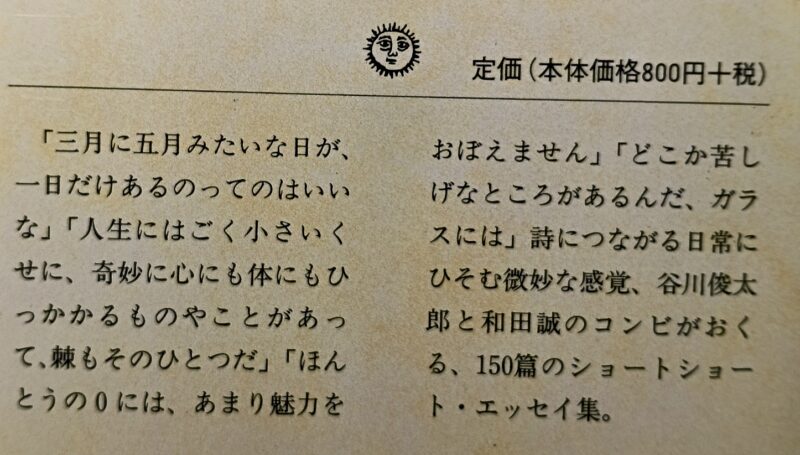 定価(本体価格800円十税)
「三月に五月みたいな日が、
一日だけあるのってのはいい
な」「人生にはごく小さいく
せに、奇妙に心にも体にもひ
っかかるものやことがあっ
て、棘もそのひとつだ」「ほん
とうの0には、あまり魅力を
おぼえません」「どこか苦し
げなところがあるんだ、ガラ
スには」詩につながる日常に
ひそむ微妙な感覚、谷川俊太
郎と和田誠のコンビがおく
る、150篇のショートショー
ト・エッセイ集。